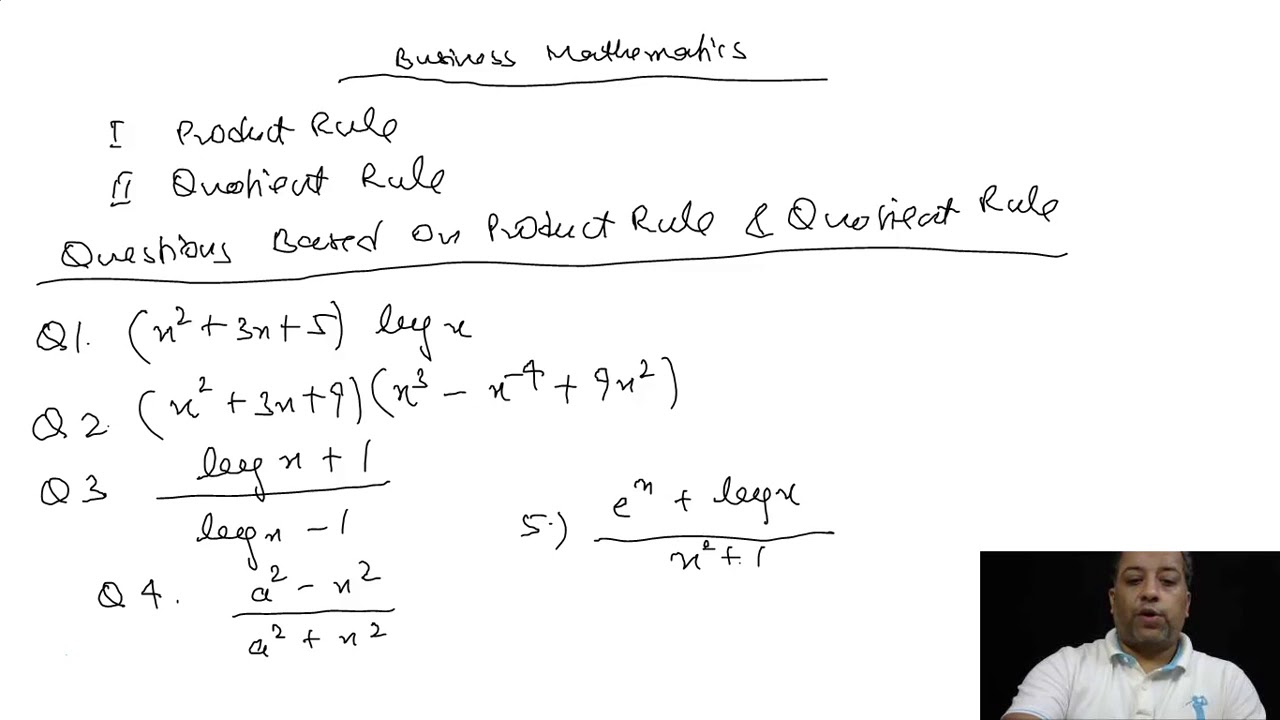 Business Mathematics
I Product Rule
II Quotient Rule
Questions Based On Product Rule & Quotient Rule
Q1. (x² + 3x + 5) log x
Q2. (x² + 3x + 9)(x³ - x⁻⁴ + 9x²)
Q3 (log x + 1) / (log x - 1)
Q4. (a² - x²) / (a² + x²)
5.) (eˣ + log x) / (x² + 1)